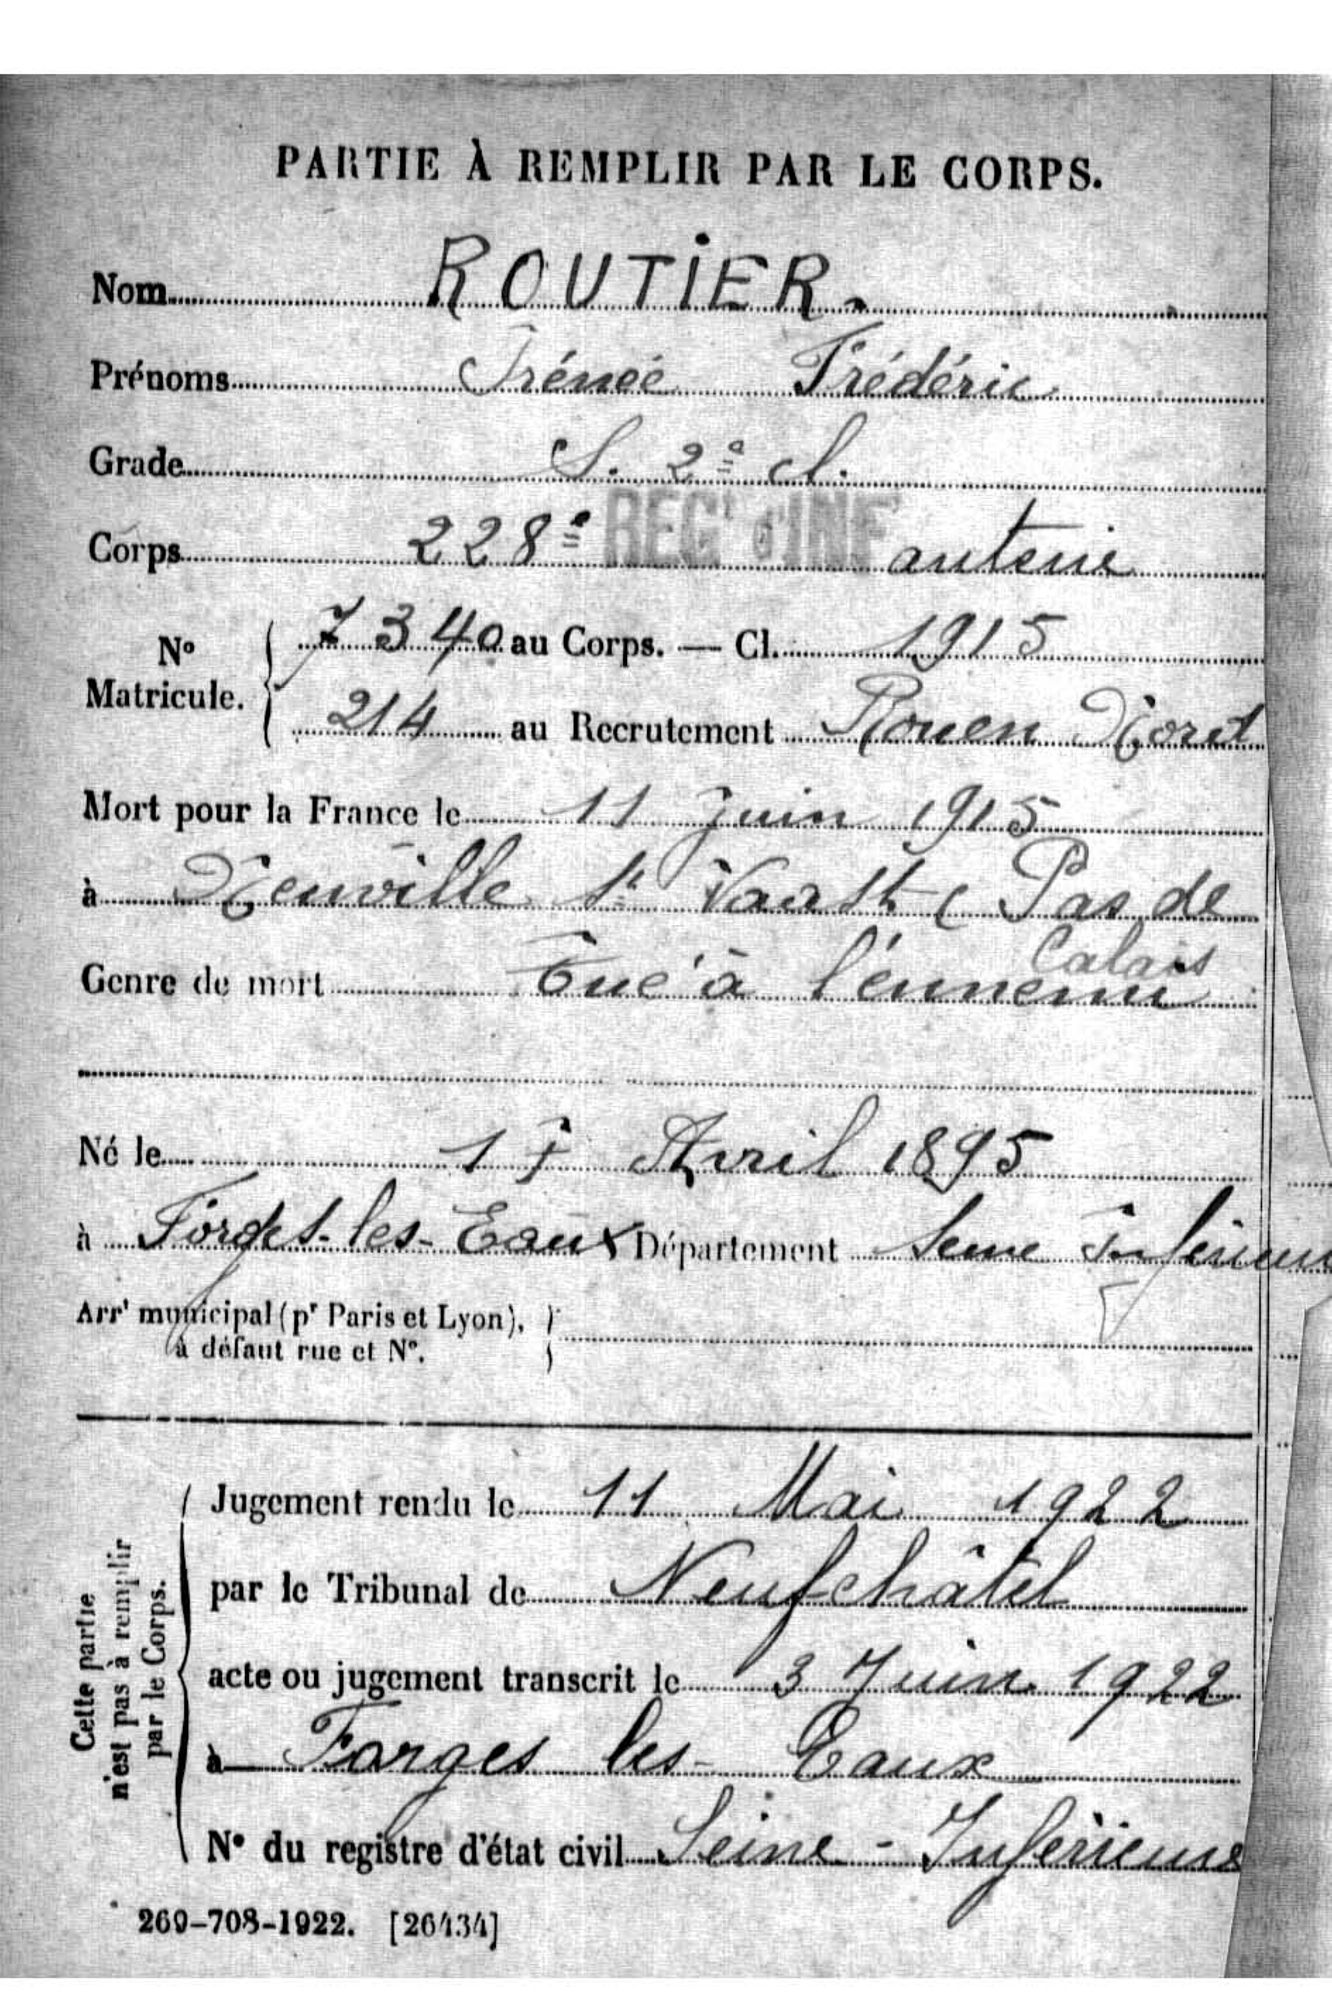 PARTIE À REMPLIR PAR LE CORPS.
Nom ROUTIER.
Prénoms Irénée Frédéric
Grade S. 2e cl.
Corps 228e REGt d'INF anterie
No Matricule. 7340 au Corps. — Cl. 1915
214 au Recrutement Rouen Nord
Mort pour la France le 11 juin 1915
à Neuville St Vaast (Pas de
Calais
Genre de mort Tué à l'énnemi
Né le 17 Avril 1895
à Forges-les-Eaux Département Seine Inférieure
Arrt municipal (pr Paris et Lyon),
à défaut rue et No.
Cette partie
n'est pas à remplir
par le Corps.
Jugement rendu le 11 Mai 1922
par le Tribunal de Neufchâtel
acte ou jugement transcrit le 3 Juin 1922
à Forges les-Eaux
No du registre d'état civil Seine-Inférieure
269-708-1922. [26434]